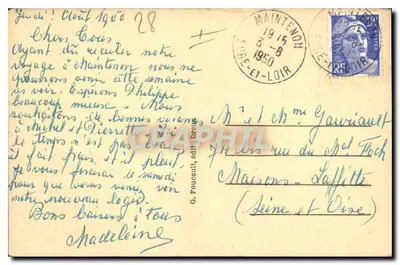 Jeudi 1 Août 1950
28
Chers Tous
Ayant dû reculer notre
voyage à Maintenon nous ne
pourrons venir cette semaine
vous voir. Espérons Philippe
beaucoup mieux. Nous
souhaitons de bonnes vacances
à Michel et Pierrette
le temps n'est pas
il fait frais, et il pleut.
Je vous le samedi
pour que vous veniez voir
notre nouveau logis.
Bons baisers à tous
Madeleine
G. Foucault, édit. Dreux
MAINTENON
19 15
6
1950
EURE-ET-LOIR
MAINTENON
EURE-ET-LOIR
M et Mme Gauriault
bis rue du Mal Foch
Maisons-Laffitte
(Seine et Oise)